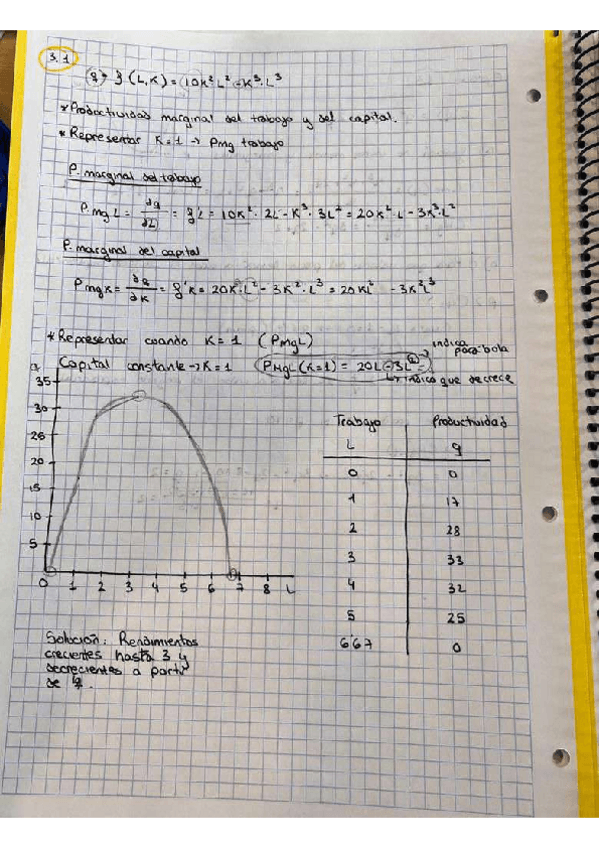 3.1
q → f (L,K) = 10K² L² - K³ · L³
* Productividad marginal del trabajo y del capital.
* Representar K=1 → Pmg trabajo
P. marginal del trabajo
PmgL = ∂q/∂L = q'L = 10K² · 2L - K³ · 3L² = 20K² · L - 3K³ · L²
P. marginal del capital
PmgK = ∂q/∂K = q'K = 20K · L² - 3K² · L³ = 20KL² - 3K²L³
* Representar cuando K=1 (PMgL)
indica parábola
Capital constante → K=1 PMgL (K=1) = 20L - 3L²
↳ indica que decrece
35
30
26
20
15
10
5
0 1 2 3 4 5 6 7 8 L
Trabajo Productividad
L q
0 0
1 17
2 28
3 33
4 32
5 25
6'67 0
Solución: Rendimientos
crecientes hasta 3 y
decrecientes a partir
de 4.